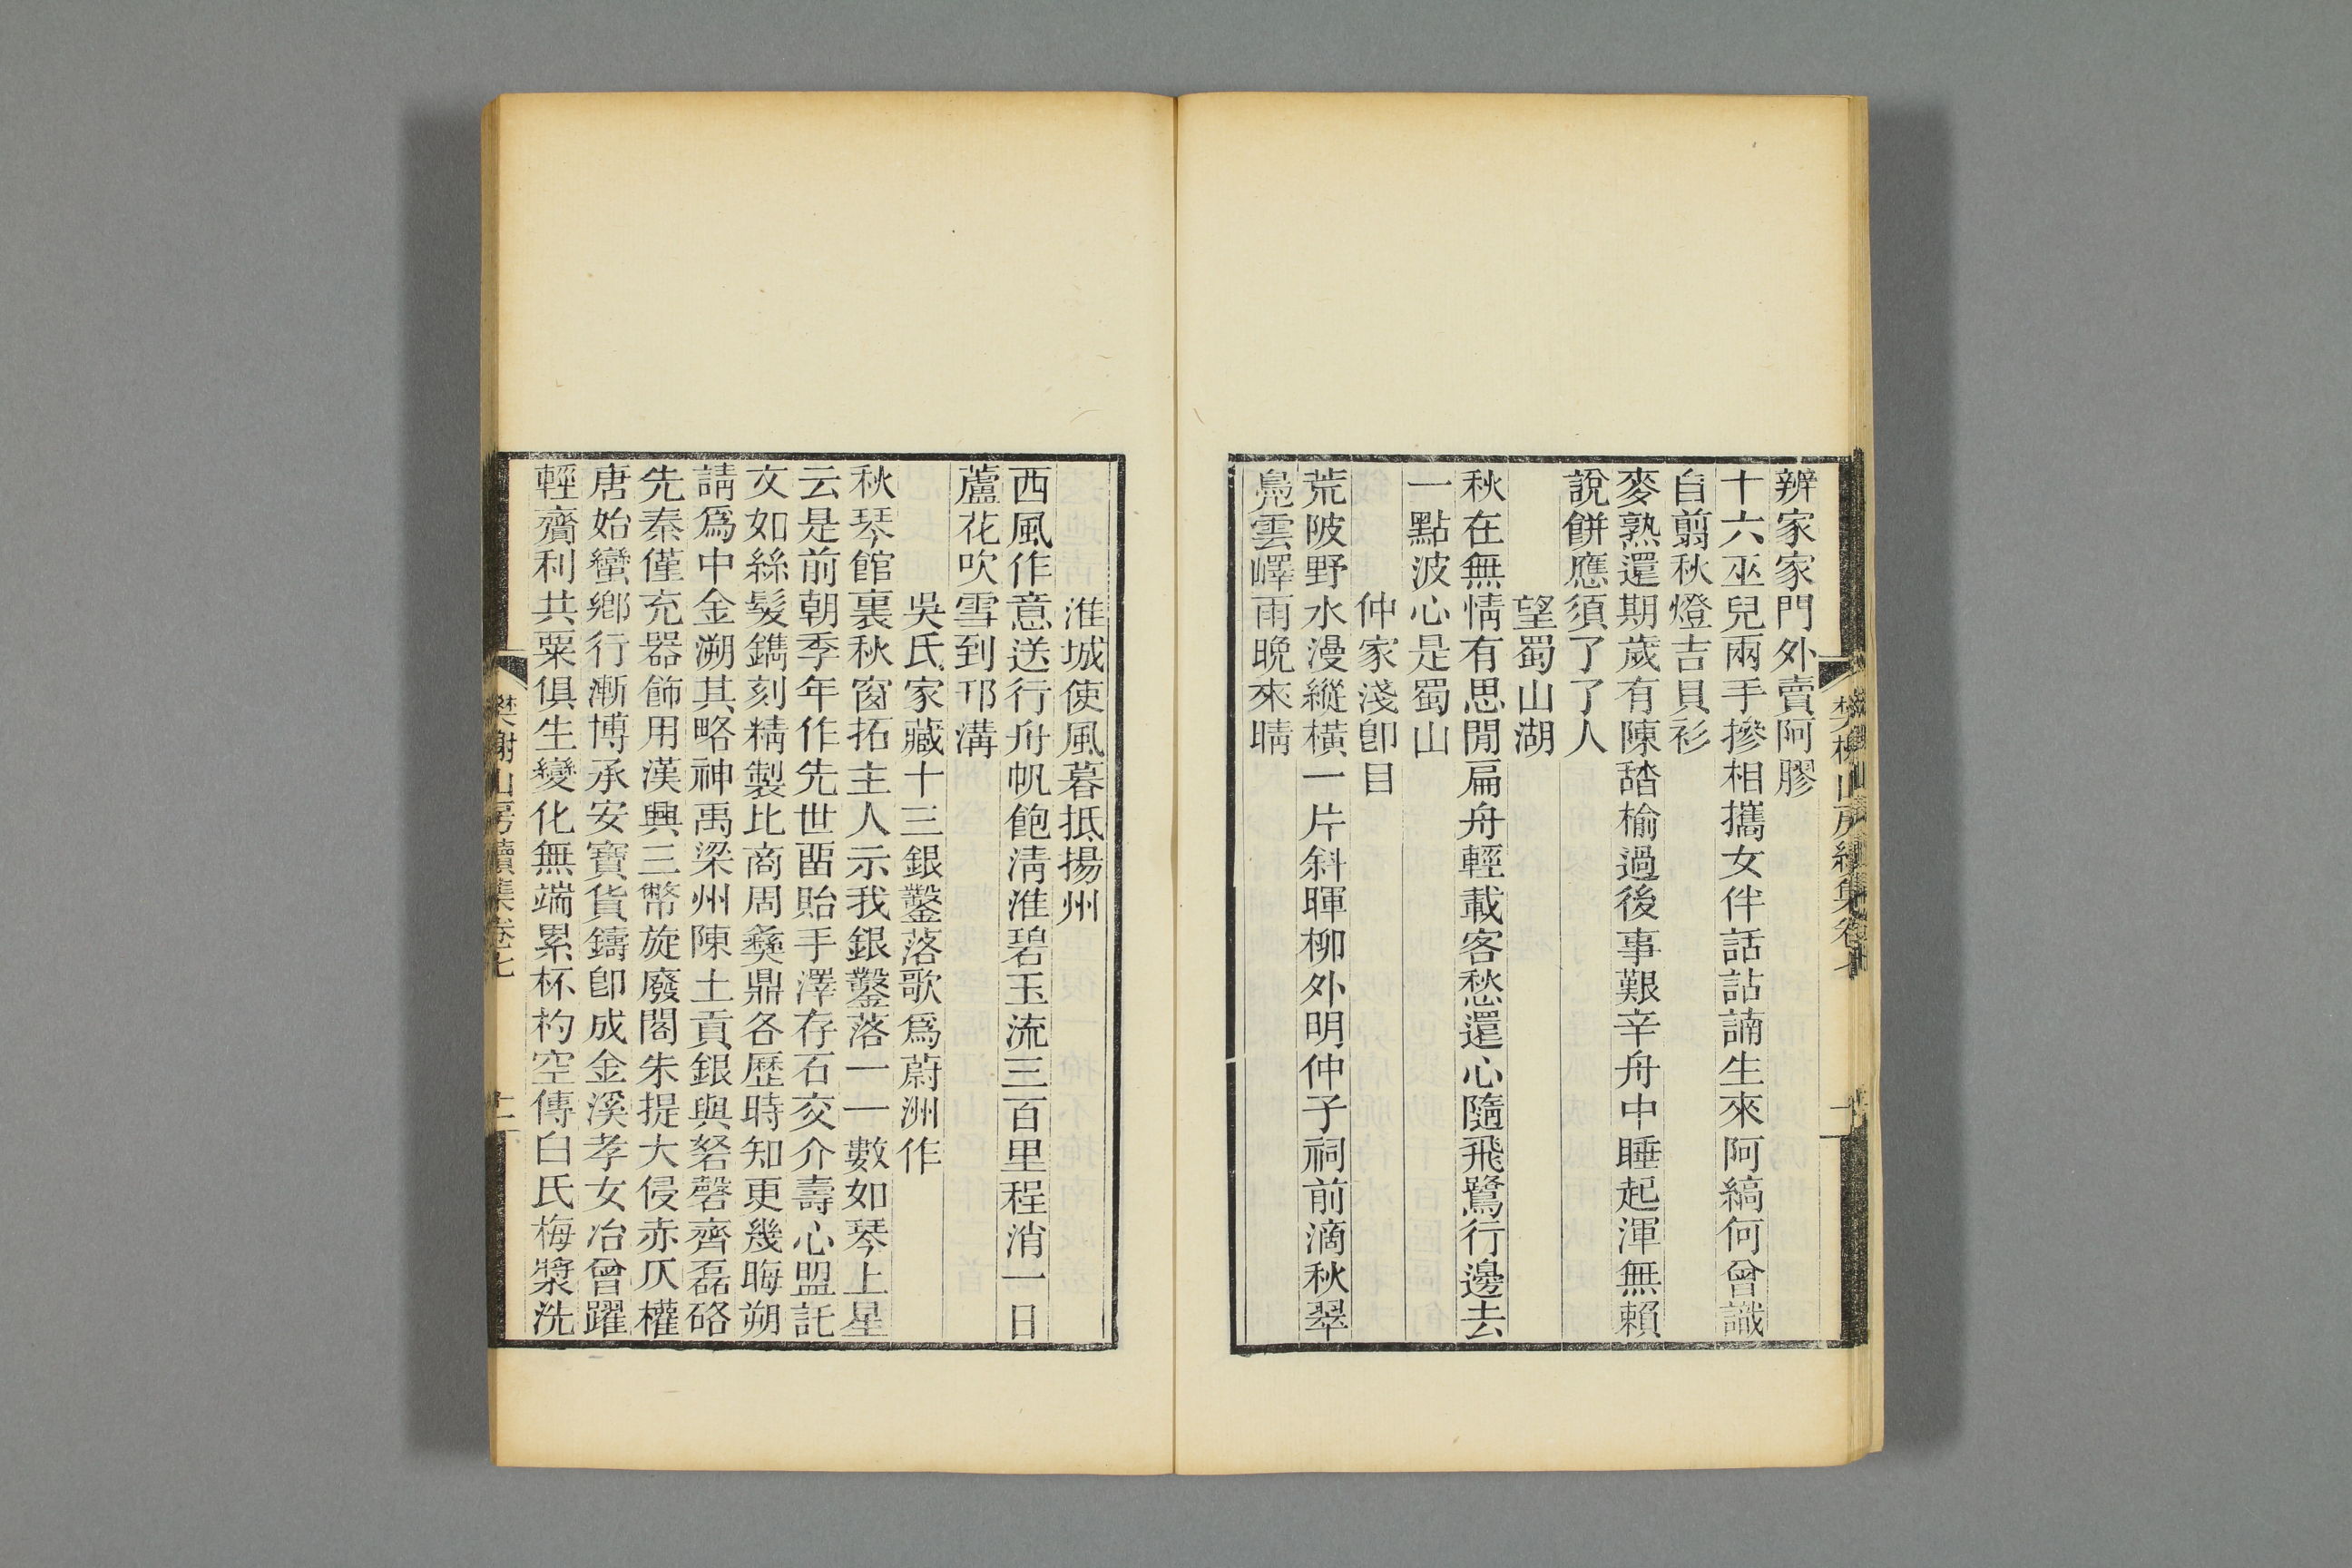 辨家家門外賣阿膠
十六巫兒兩手摻相攜女伴話詀諵生來阿縞何曾識
自翦秋燈吉貝衫
麥熟還期歲有陳䅟榆過後事艱辛舟中睡起渾無賴
說餅應須了了人
望蜀山湖
秋在無情有思閒扁舟輕載客愁還心隨飛鷺行邊去
一點波心是蜀山
仲家淺卽目
荒陂野水漫縱橫一片斜暉柳外明仲子祠前滴秋翠
鳧雲嶧雨晚來晴
樊榭山房續集卷七
淮城使風暮抵揚州
西風作意送行舟帆飽淸淮碧玉流三百里程消一日
蘆花吹雪到邗溝
吳氏家藏十三銀鑿落歌爲蔚洲作
秋琴館裏秋窗拓主人示我銀鑿落一一數如琴上星
云是前朝季年作先世畱貽手澤存石交介壽心盟託
文如絲髮鐫刻精製比商周彝鼎各歷時知更幾晦朔
請爲中金溯其略神禹梁州陳土貢銀與砮磬齊磊硌
先秦僅充器飾用漢興三幣旋廢閣朱提大侵赤仄權
唐始蠻鄉行漸博承安寶貨鑄卽成金溪孝女冶曾躍
輕齎利共粟俱生變化無端累杯杓空傳白氏梅漿洗
樊榭山房續集卷七